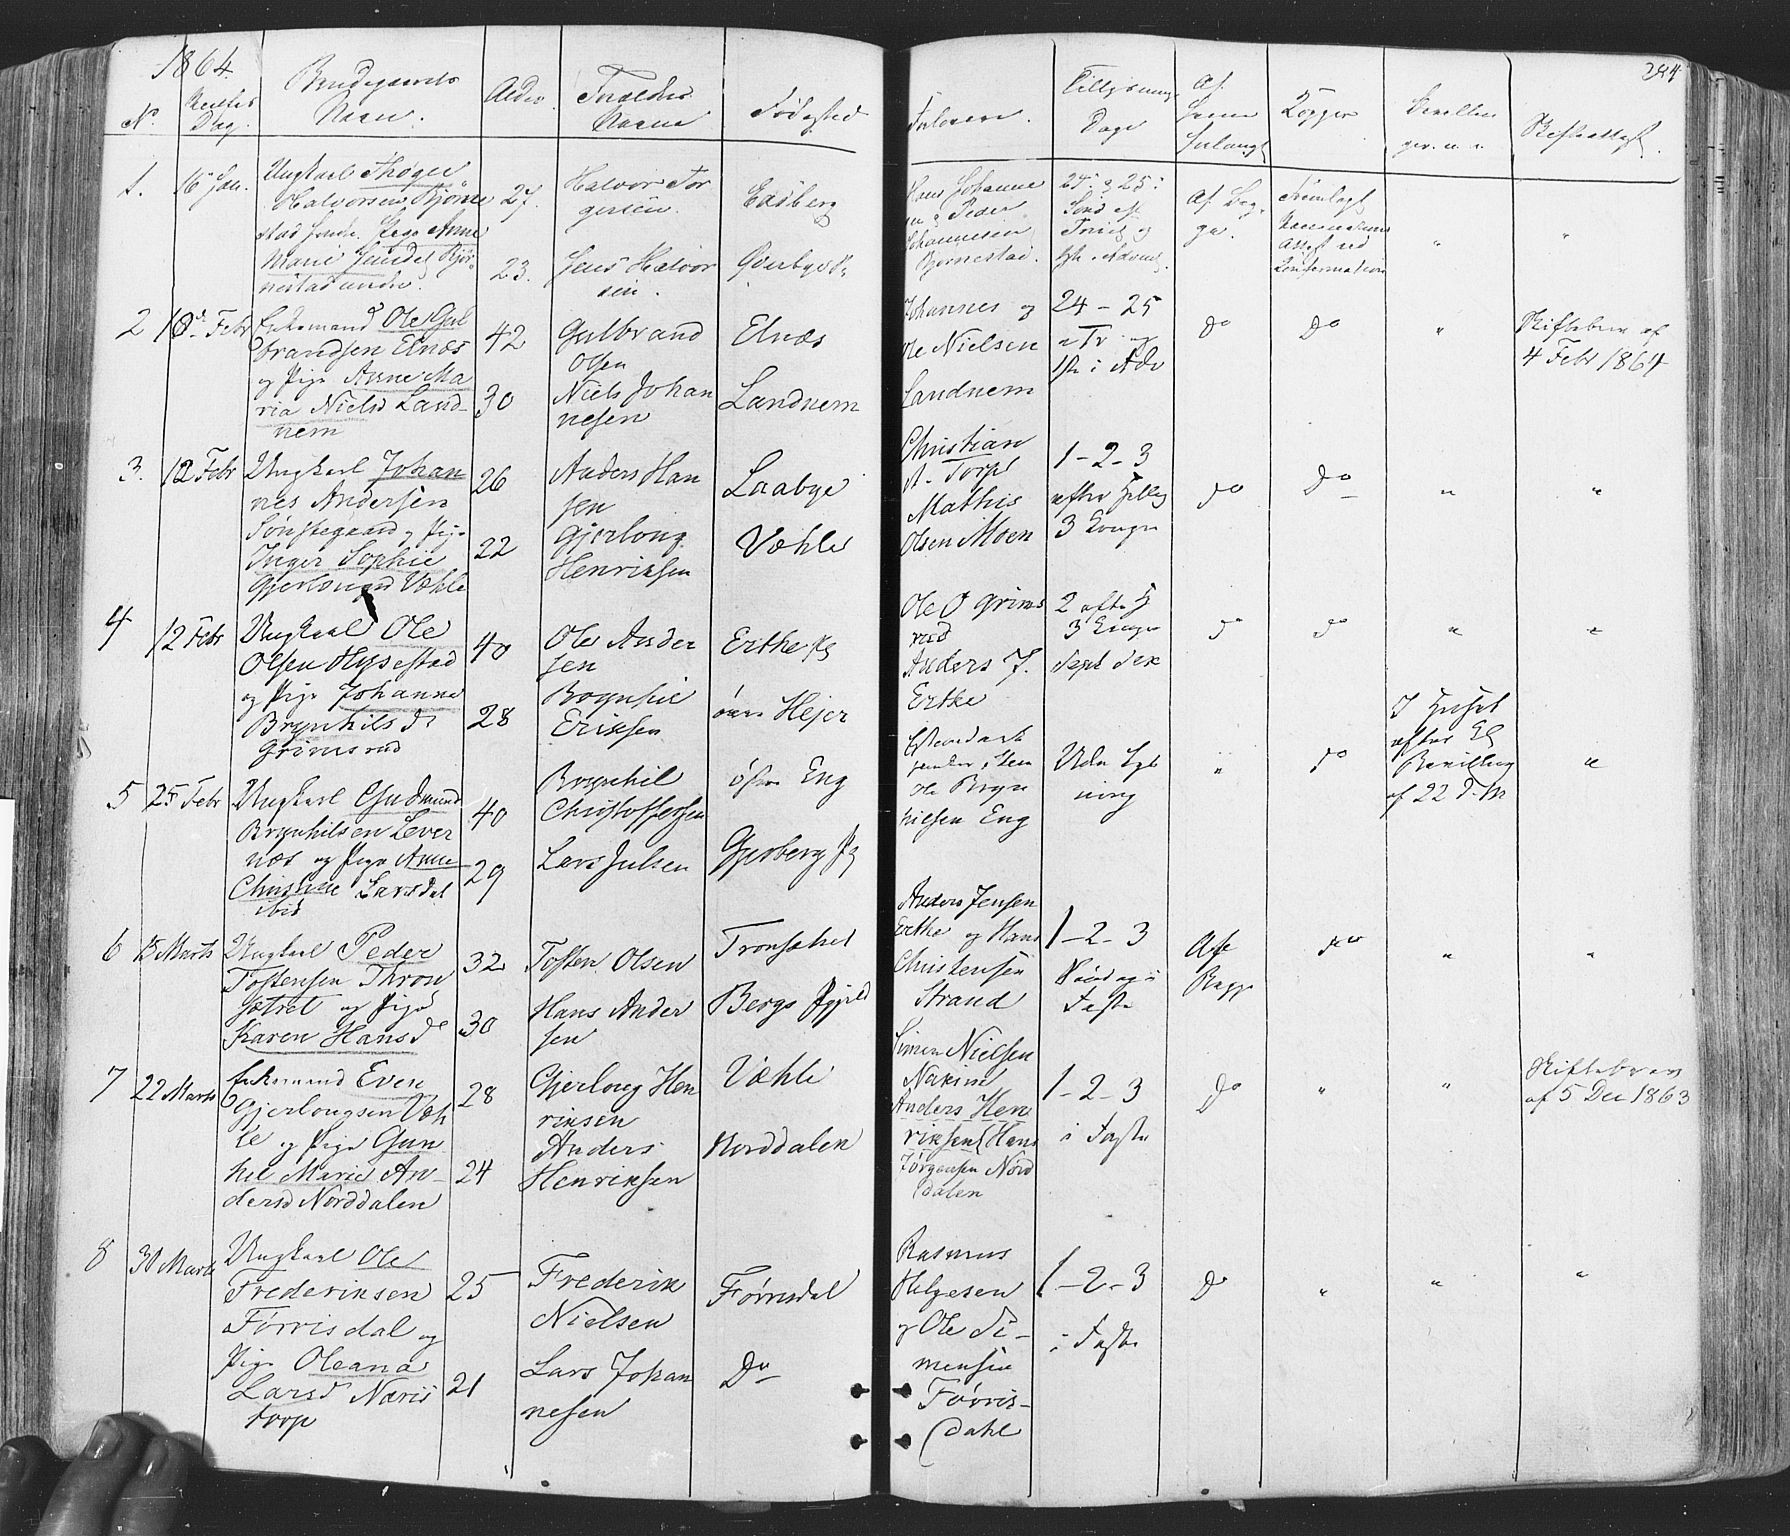 1864.
244
No
Vielses
Dag
Brudeparrets
Navn.
Alder
Forældres
Navne
Fødested
Forlovere.
Tillysnings
Dage
Af
hvem
forlangt
Kopper
Bevillin
ger. m. v.
Skifteattest.
1.
16 Jan.
Ungkarl Thøger
Halvorsen Bjørne
stad
Pige Anne
Marie
27.
23.
Halvor Tor
gersen.
Jens Halvor
sen.
Edsberg
Hans Johanne
sen & Peder
Johannesen
Bjørnestad.
24 & 25
Sønd. eft.
Trinit. og
1ste Advent.
Af Bog
ge.
Fremlagt
Attest ved
Confirmation
"
"
2
10 Febr
Enkemand Ole Gul
brandsen Elnæs
og Pige Anne Ma
ria Nielsd Land
nem
42
30
Gulbrand
Olsen
Niels Johan
nesen
Elnæs
Landnem
Johannes og
Ole Nielsen
Landnem
24 - 25
e Tr og
1ste i Adv
Do
Do
"
Skiftebrev af
4 Febr 1864
3.
12 Febr
Ungkarl Johan
nes Andersen
Sønstegaard og Pige
Inger Sophie
Gjerlougsd Væhle
26
22
Anders Han
sen
Gjerloug
Henriksen
Laabye
Væhle
Christian
A. Torp
Mathis
Olsen Moen
1-2-3
efter Hellig
3 Konger
Do
Do
"
"
4
12 Febr
Ungkarl Ole
Olsen Hysestad
og Pige Johanne
Brynhilsdr
Grimsrud
40
28
Ole Ander
sen
Brynhil
Eriksen
Erthe
Hejer
Ole O Grims
rud
Anders J.
Erthe
2 efter H
3 Konger
Sept Sex
Do
Do
"
"
5
25 Febr
Ungkarl Gudmund
Brynhilsen Lever
næs og Pige Anne
Christine Larsdal
ibid
40
29
Brynhil
Christoffersen
Lars Julsen
Eng
Gjerberg
Ole Bryn
hilsen Eng
Uden Lys
ning
"
Do
I Huset
efter Kg
Bevilling
af 22 d. M
"
6
15 Marts
Ungkarl Peder
Tostensen Thron
sætret og Pige
Karen Hansdr
32
30
Tosten Olsen
Hans Ander
sen
Tronsætret
Bergs Pgjeld
Anders Jensen
Erthe og Hans
Christensen
Strand
1-2-3
Søndag i
Faste
Af
Bogge
Do
"
"
7
22 Marts
Enkemand Even
Gjerlougsen Væh
le og Pige Gun
hil Marie An-
dersd Norddalen
28
24
Gjerloug Hen
riksen
Anders
Henriksen
Væhle
Norddalen
Simen Nielsen
Anders Hen
riksen (Hans
Jørgensen Nord
dalen
1-2-3
i Faste
Do
"
"
Skiftebrev
af 5 Dec 1863
8
30 Marts
Ungkarl Ole
Frederiksen
Førrisdal og
Pige Oleana
Larsd Næris
torp
25
21
Frederik
Nielsen
Lars Johan
nesen
Førrisdal
Do
Rasmus
Helgesen
og Ole Si-
mensen
Førris-
dahl
1-2-3
i Faste
Do
"
"
"